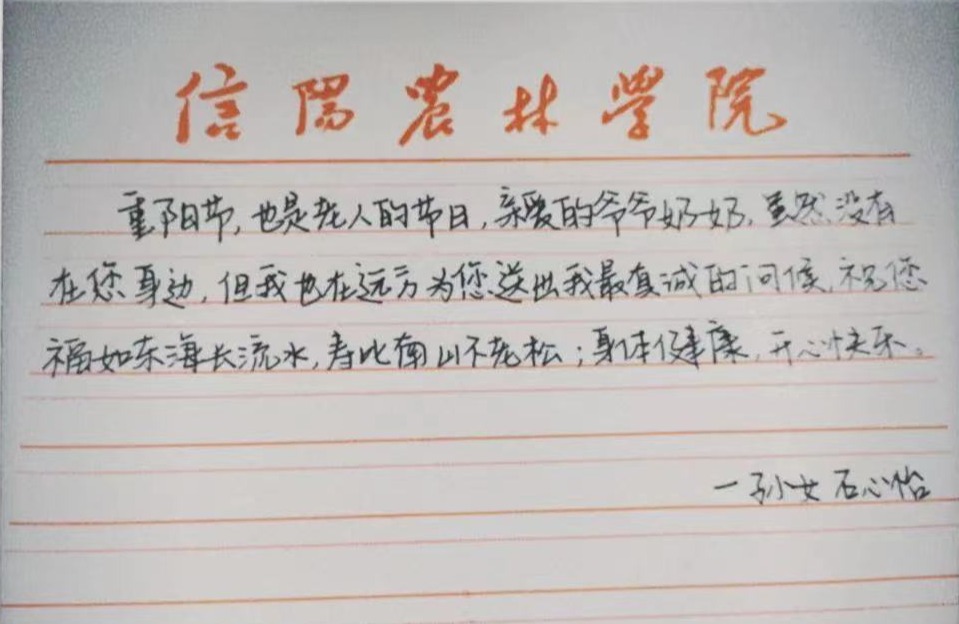 信阳农林学院
重阳节,也是老人的节日,亲爱的爷爷奶奶,虽然没有
在您身边,但我也在远方为您送出我最真诚的问候,祝您
福如东海长流水,寿比南山不老松;身体健康,开心快乐。
一孙女 石心怡